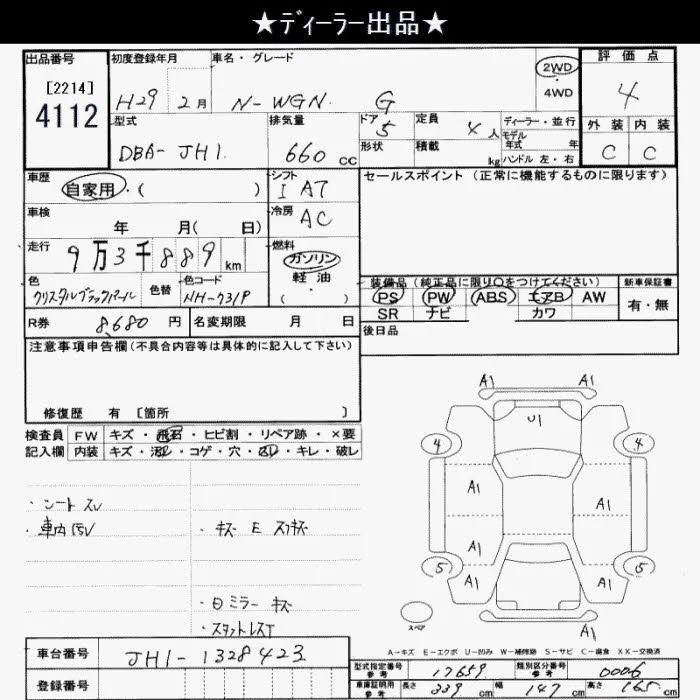 ★ディーラー出品★
出品番号
[2214]
4112
初度登録年月
H29 2月
車名・グレード
N-WGN G
2WD
4WD
評価点
4
外装 内装
C C
型式
DBA-JH1
排気量
660 cc
ドア
5
形状
定員
4人
積載
kg
ディーラー・並行
モデル
年式 年
ハンドル 左・右
車歴
自家用・( )
シフト
I AT
車検
年 月( 日)
冷房
AC
走行
9万3千889km
燃料
ガソリン
軽油
( )
色
クリスタルブラックパール
色替
色コード
NH-731P
セールスポイント(正常に機能するものに限ります)
装備品(純正品に限り○をつけてください)
PS PW ABS エアB AW
SR ナビ カワ
新車保証書
有・無
後日品
R券
8,680円
名変期限 月 日
注意事項申告欄(不具合内容等は具体的に記入して下さい)
修復歴 有 [箇所 ]
検査員
記入欄
FW キズ・飛石・ヒビ割・リペア跡・×要
内装 キズ・汚れ・コゲ・穴・・キレ・破レ
・シート スレ
・車内汚レ
・キズ E スリ
・ミラー キズ
・スタッドレスT
A1 A1
U1
4 4
A1
A1
A1
5 5
A1 A1
A1 A1
スペア
A-キズ E-エクボ U-凹み W-補修跡 S-サビ C-腐食 XX-交換済
車台番号
JH1-1328423
登録番号
型式指定番号
参考
17659
類別区分番号
参考
0006
車庫証明用
参考
長さ 339cm 幅 147cm 高さ 165cm